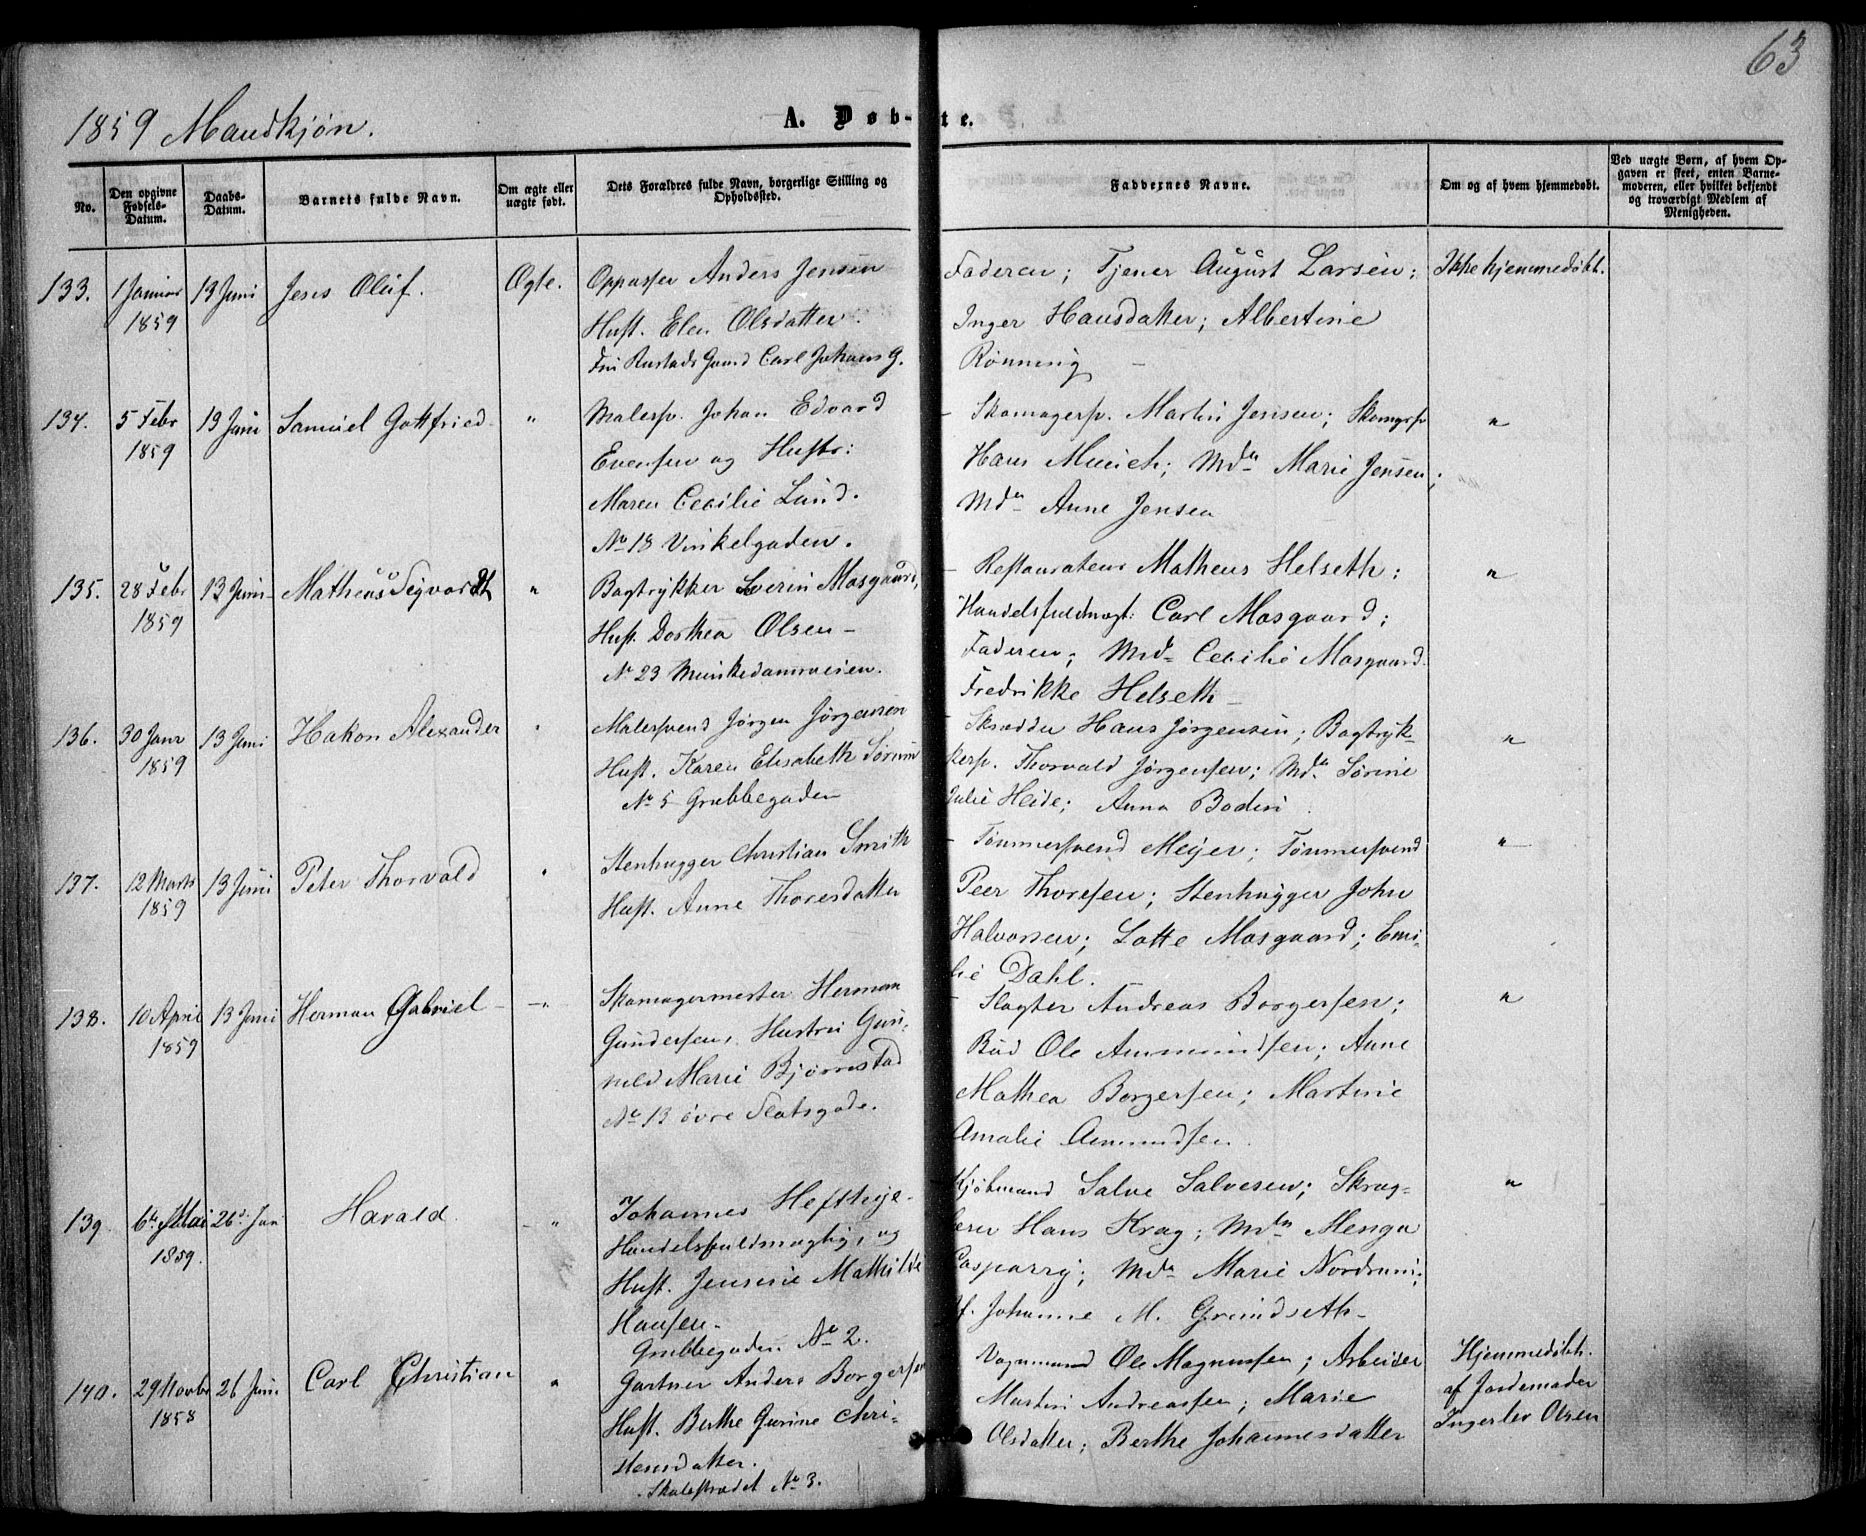 63
1859 Mandkjøn.
A. Døb-te.
No.
Den opgivne Fødsels-Datum.
Daabs-Datum.
Barnets fulde Navn.
Om ægte eller uægte født.
Dets Forældres fulde Navn, borgerlige Stilling og Opholdssted.
Faddernes Navne.
Om og af hvem hjemmedøbt.
Ved uægte Børn, af hvem Opgaven er skeet, enten Barnemoderen, eller hvilket bekjendt og troværdigt Medlem af Menigheden.
133. 1 Januar 1859 13 Juni Jens Oluf. Ægte.
Oppasser Anders Jensen
Hust. Elen Olsdatter.
Rustads Gaard Carl Johans G.
Faderen; Tjener August Larsen;
Inger Hansdatter; Albertine
Rønning
Ikke hjemmedøbt.
134. 5 Febr 1859 13 Juni Samuel Gottfried "
Malersv. Johan Edvard
Evensen og Hustr:
Maren Cecilie Lund.
No 18 Vinkelgaden.
Skomagersv. Martin Jensen; Skomgrsv
Hans Münich; Mdm Marie Jensen;
Mdm Anne Jensen
"
135. 28 Febr 1859 13 Juni Matheus Sigvardt "
Bogtrykker Severin Mosgaard,
Hust. Dorthea Olsen
No 23 Munkedamsveien.
Restaurateur Matheus Helseth;
Handelsfuldmægt: Carl Mosgaard;
Faderen; Md. Cecilie Mosgaard
Fredrikke Helseth
"
136. 30 Janr 1859 13 Juni Hakon Alexander "
Malersvend Jørgen Jørgensen
Hust. Karen Elisabeth Sørum
No 5 Grubbegaden
Skrædder Hans Jørgensen; Bogtryk-
kersv. Thorvald Jørgensen; Mdm Sørine
Julie Heide; Anna Bodin
"
137. 12 Marts 1859 13 Juni Peter Thorvald "
Stenhugger Christian Smith
Hust. Anne Thoresdatter
Tømmersvend Meijer; Tømmersvend
Peer Thoresen; Stenhugger John
Halvorsen; Lotte Mosgaard; Emi-
lie Dahl.
"
138. 10 April 1859 13 Juni Herman Gabriel "
Skomagermester Herman
Gundersen, Hustru Gun-
hild Marie Bjørnestad
No 13 øvre Slotsgade.
Slagter Andreas Borgersen;
Bud Ole Ammundsen; Anne
Mathea Borgersen; Martine
Amalie Ammundsen.
"
139. 6te Mai 1859. 26de Juni Harald. "
Johannes Heftye
Handelsfuldmægtig, og
Hust. Jensine Mathilde
Hansen.
Grubbegaden No 2.
Kjøbmand Salve Salvesen; Skræd-
derer Hans Krag; Mdm Menga
Casparry; Mdm Marie Nordrum;
Jf. Johanne M. Grindseth
"
140. 29 Novbr 1858 26 Juni. Carl Christian "
Gartner Anders Borgersen
Hust. Berthe Gurine Chri-
stensdatter.
Skolestrædet No 3.
Vognmand Ole Magnussen; Arbeider
Martin Andreassen; Marie
Olsdatter; Berthe Johannesdatter
Hjemmedøbt
af Jordemoder
Ingerlev Olsen